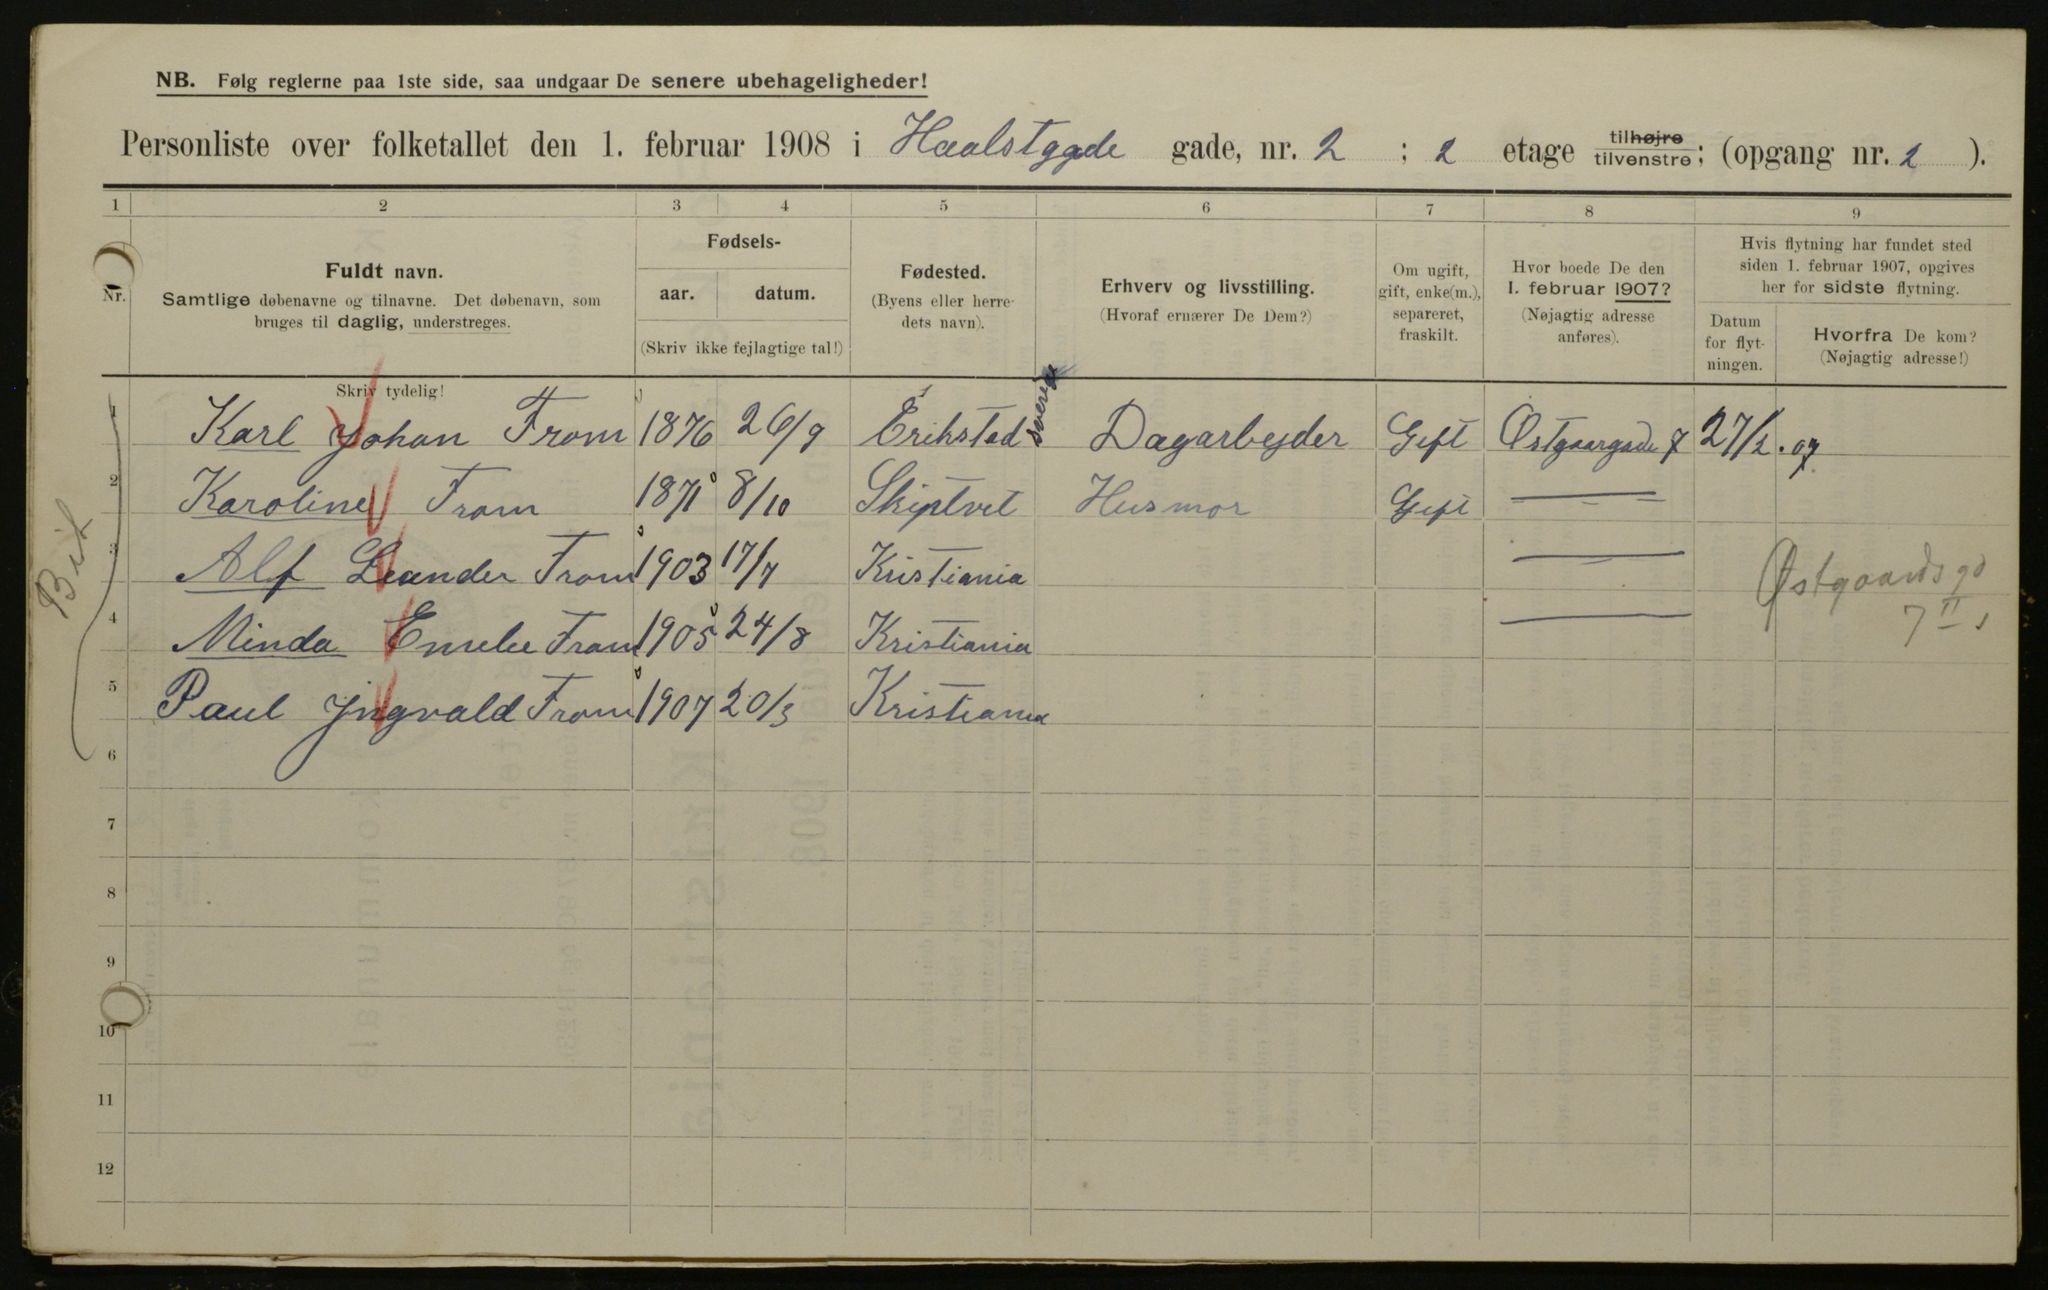 NB. Følg reglerne paa 1ste side, saa undgaar De senere ubehageligheder!
Personliste over folketallet den 1. februar 1908 i Haalstggde gade, nr. 2 ; 2 etage tilhøjre tilvenstre; (opgang nr. 2 ).
1 2 3 4 5 6 7 8 9
Nr.
Fuldt navn.
Samtlige døbenavne og tilnavne. Det døbenavn, som
bruges til daglig, understreges.
Skriv tydelig!
Fødsels-
aar. datum.
(Skriv ikke fejlagtige tal!)
Fødested.
(Byens eller herre-
dets navn).
Erhverv og livsstilling.
(Hvoraf ernærer De Dem?)
Om ugift,
gift, enke(m.),
separeret,
fraskilt.
Hvor boede De den
1. februar 1907?
(Nøjagtig adresse
anføres).
Hvis flytning har fundet sted
siden 1. februar 1907, opgives
her for sidste flytning.
Datum
for flyt-
ningen.
Hvorfra De kom?
(Nøjagtig adresse!)
1 Karl Johan From 1876 26/9 Erikstad Dagarbejder Gift Østgaargade 7 27/2.07
2 Karoline From 1871 8/10 Skiptvet Husmor Gift — " —
3 Alf Leander From 1903 17/7 Kristiania — " —
4 Minda Emelie From 1905 24/8 Kristiania
5 Paul Yngvald From 1907 20/3 Kristiania
Østgaards gd
7 II
6
7
8
9
10
11
12